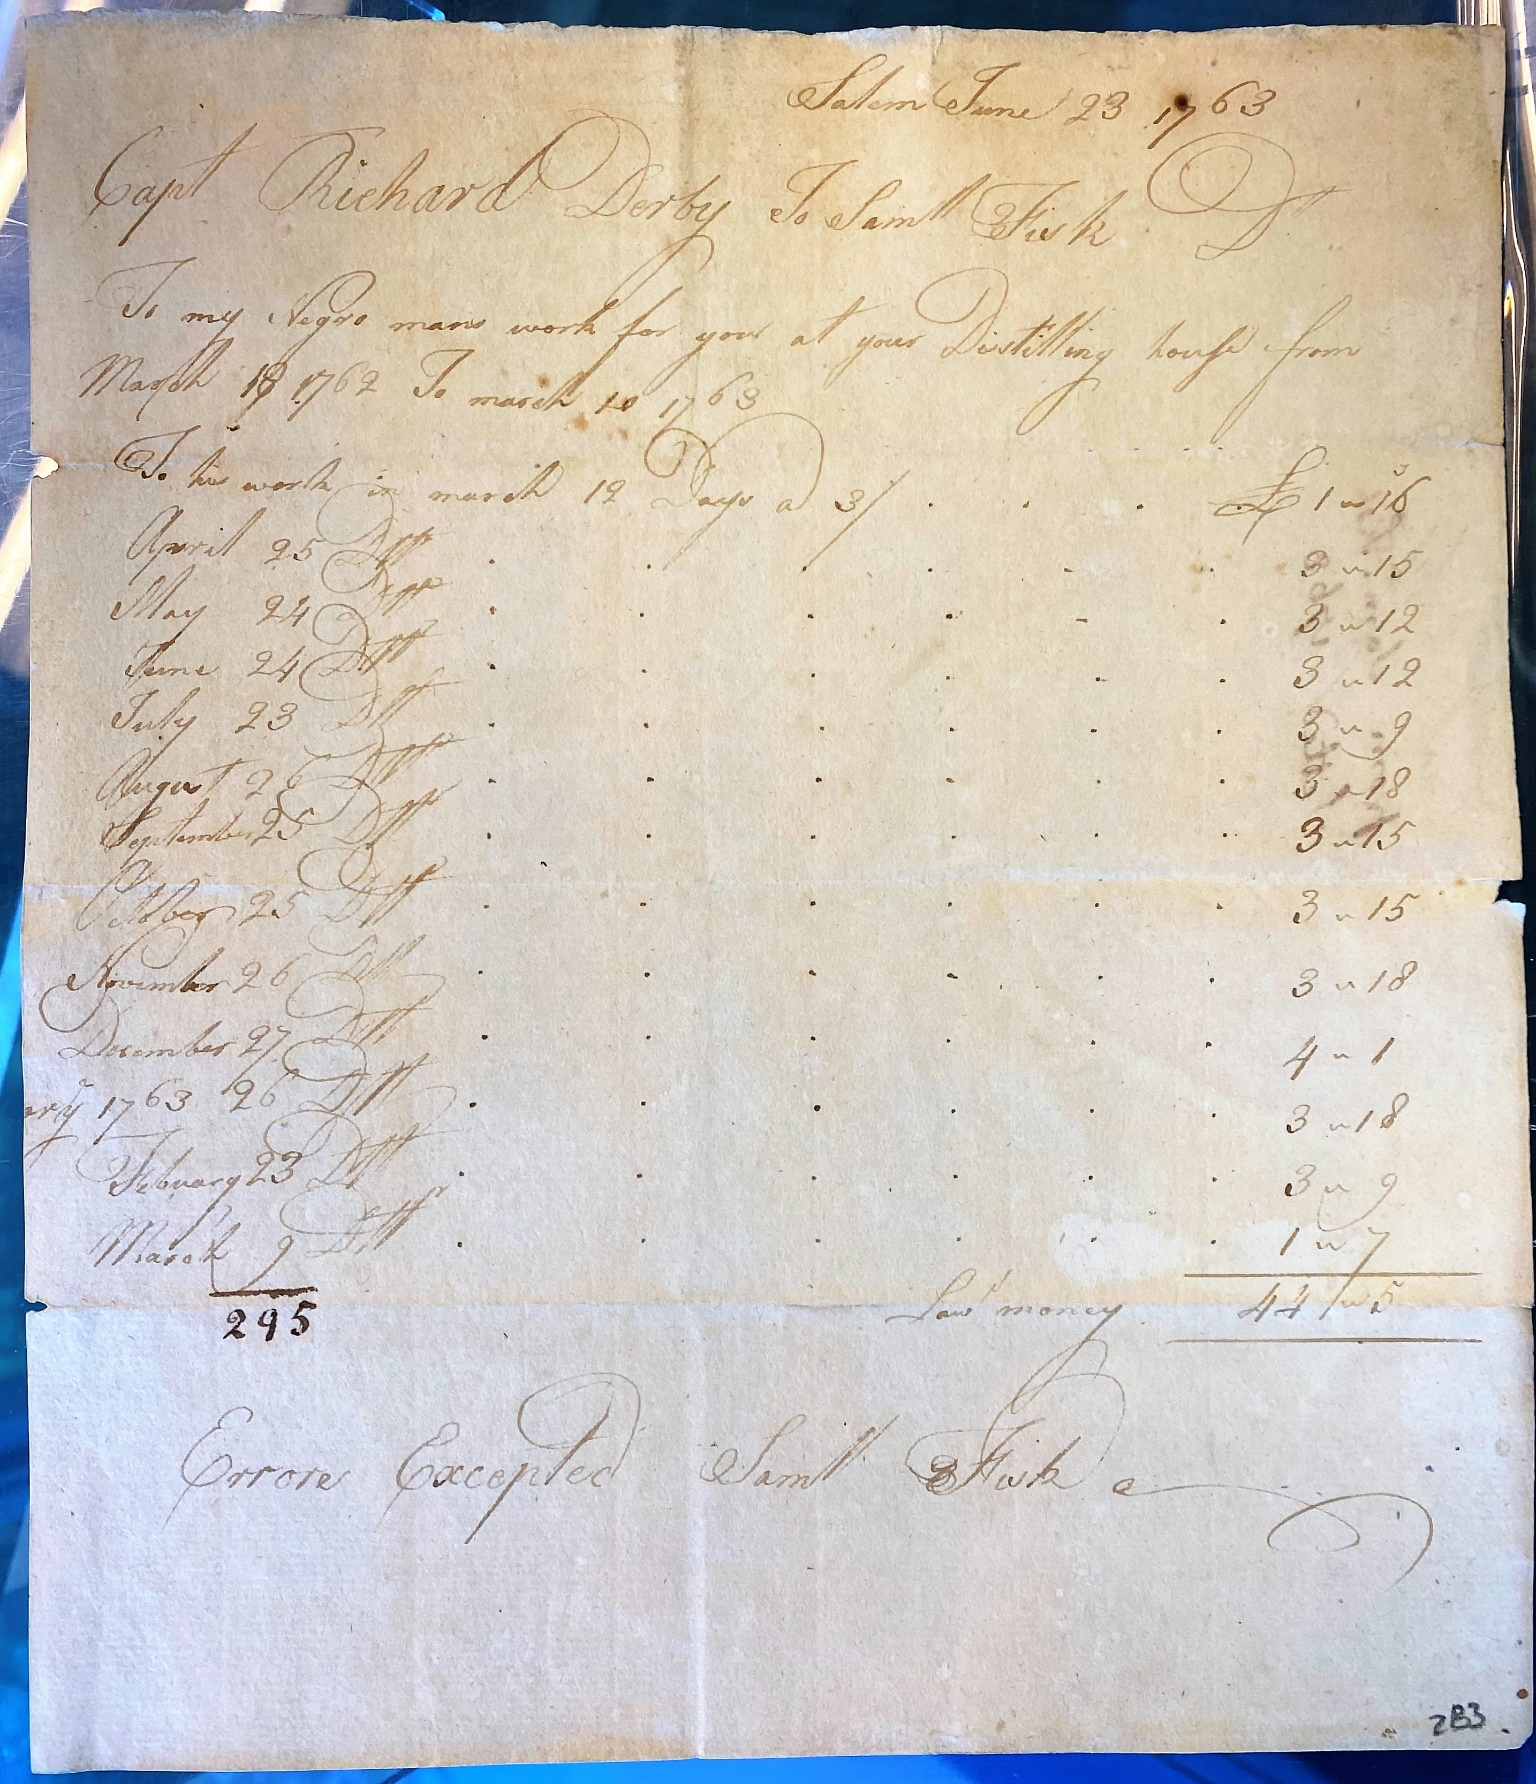 Salem June 23 1763
Capt Richard Derby To Samll Fisk Dr
To my Negro mans work for your at your Distilling house from
March 18 1762 To march 10 1763
To his work in march 12 Days a 3/ . . . £ 1 " 16
April 25 Dtt . . . . . . 3 " 15
May 24 Dtt . . . . . . 3 " 12
June 24 Dtt . . . . . . 3 " 12
July 23 Dtt . . . . . . 3 " 9
August 26 Dtt . . . . . . 3 " 18
September 25 Dtt . . . . . . 3 " 15
October 25 Dtt . . . . . . 3 " 15
November 26 Dtt . . . . . . 3 " 18
December 27 Dtt . . . . . . 4 " 1
ary 1763 26 Dtt . . . . . . 3 " 18
Febuary 23 Dtt . . . . . . 3 " 9
March 9 Dtt . . . . . . 1 " 7
295 Lawl money 44 " 5
Errors Excepted Samll Fisk
283